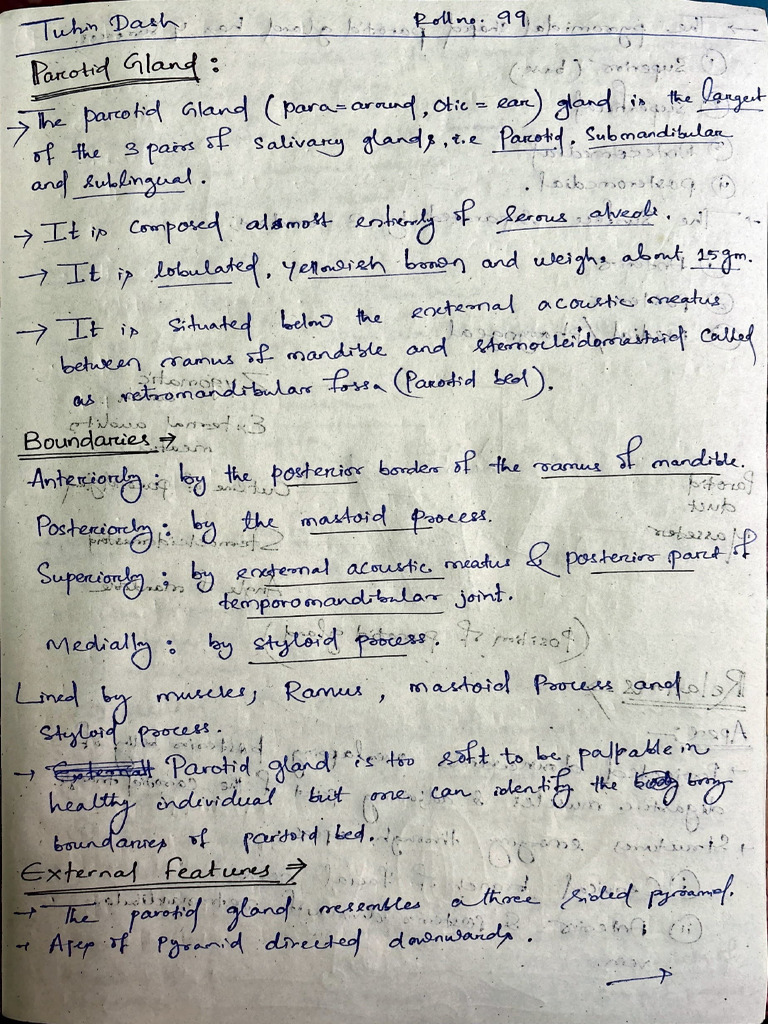 Tuhin Dash Roll no: 99
Parotid Gland:
→ The parotid Gland (para=around, otic = ear) gland is the largest
of the 3 pairs of salivary glands, i.e Parotid, Submandibular
and sublingual.
→ It is composed alomost entirely of serous alveoli.
→ It is lobulated, yellowish brown and weighs about 15gm.
→ It is situated below the external acoustic meatus
between ramus of mandible and sternocleidomastoid called
as retromandibular fossa (Parotid bed).
Boundaries →
Anteriorly: by the posterior border of the ramus of mandible.
Posteriorly: by the mastoid process.
Superiorly: by external acoustic meatus & posterior part of
temporomandibular joint.
Medially: by styloid process.
Lined by muscles, Ramus, mastoid Process and
styloid process.
→ Parotid gland is too soft to be palpable in
healthy individual but one can identify the bony
boundaries of parotid bed.
External features →
→ The parotid gland resembles a three sided pyramid.
→ Apex of Pyramid directed downwards.
→